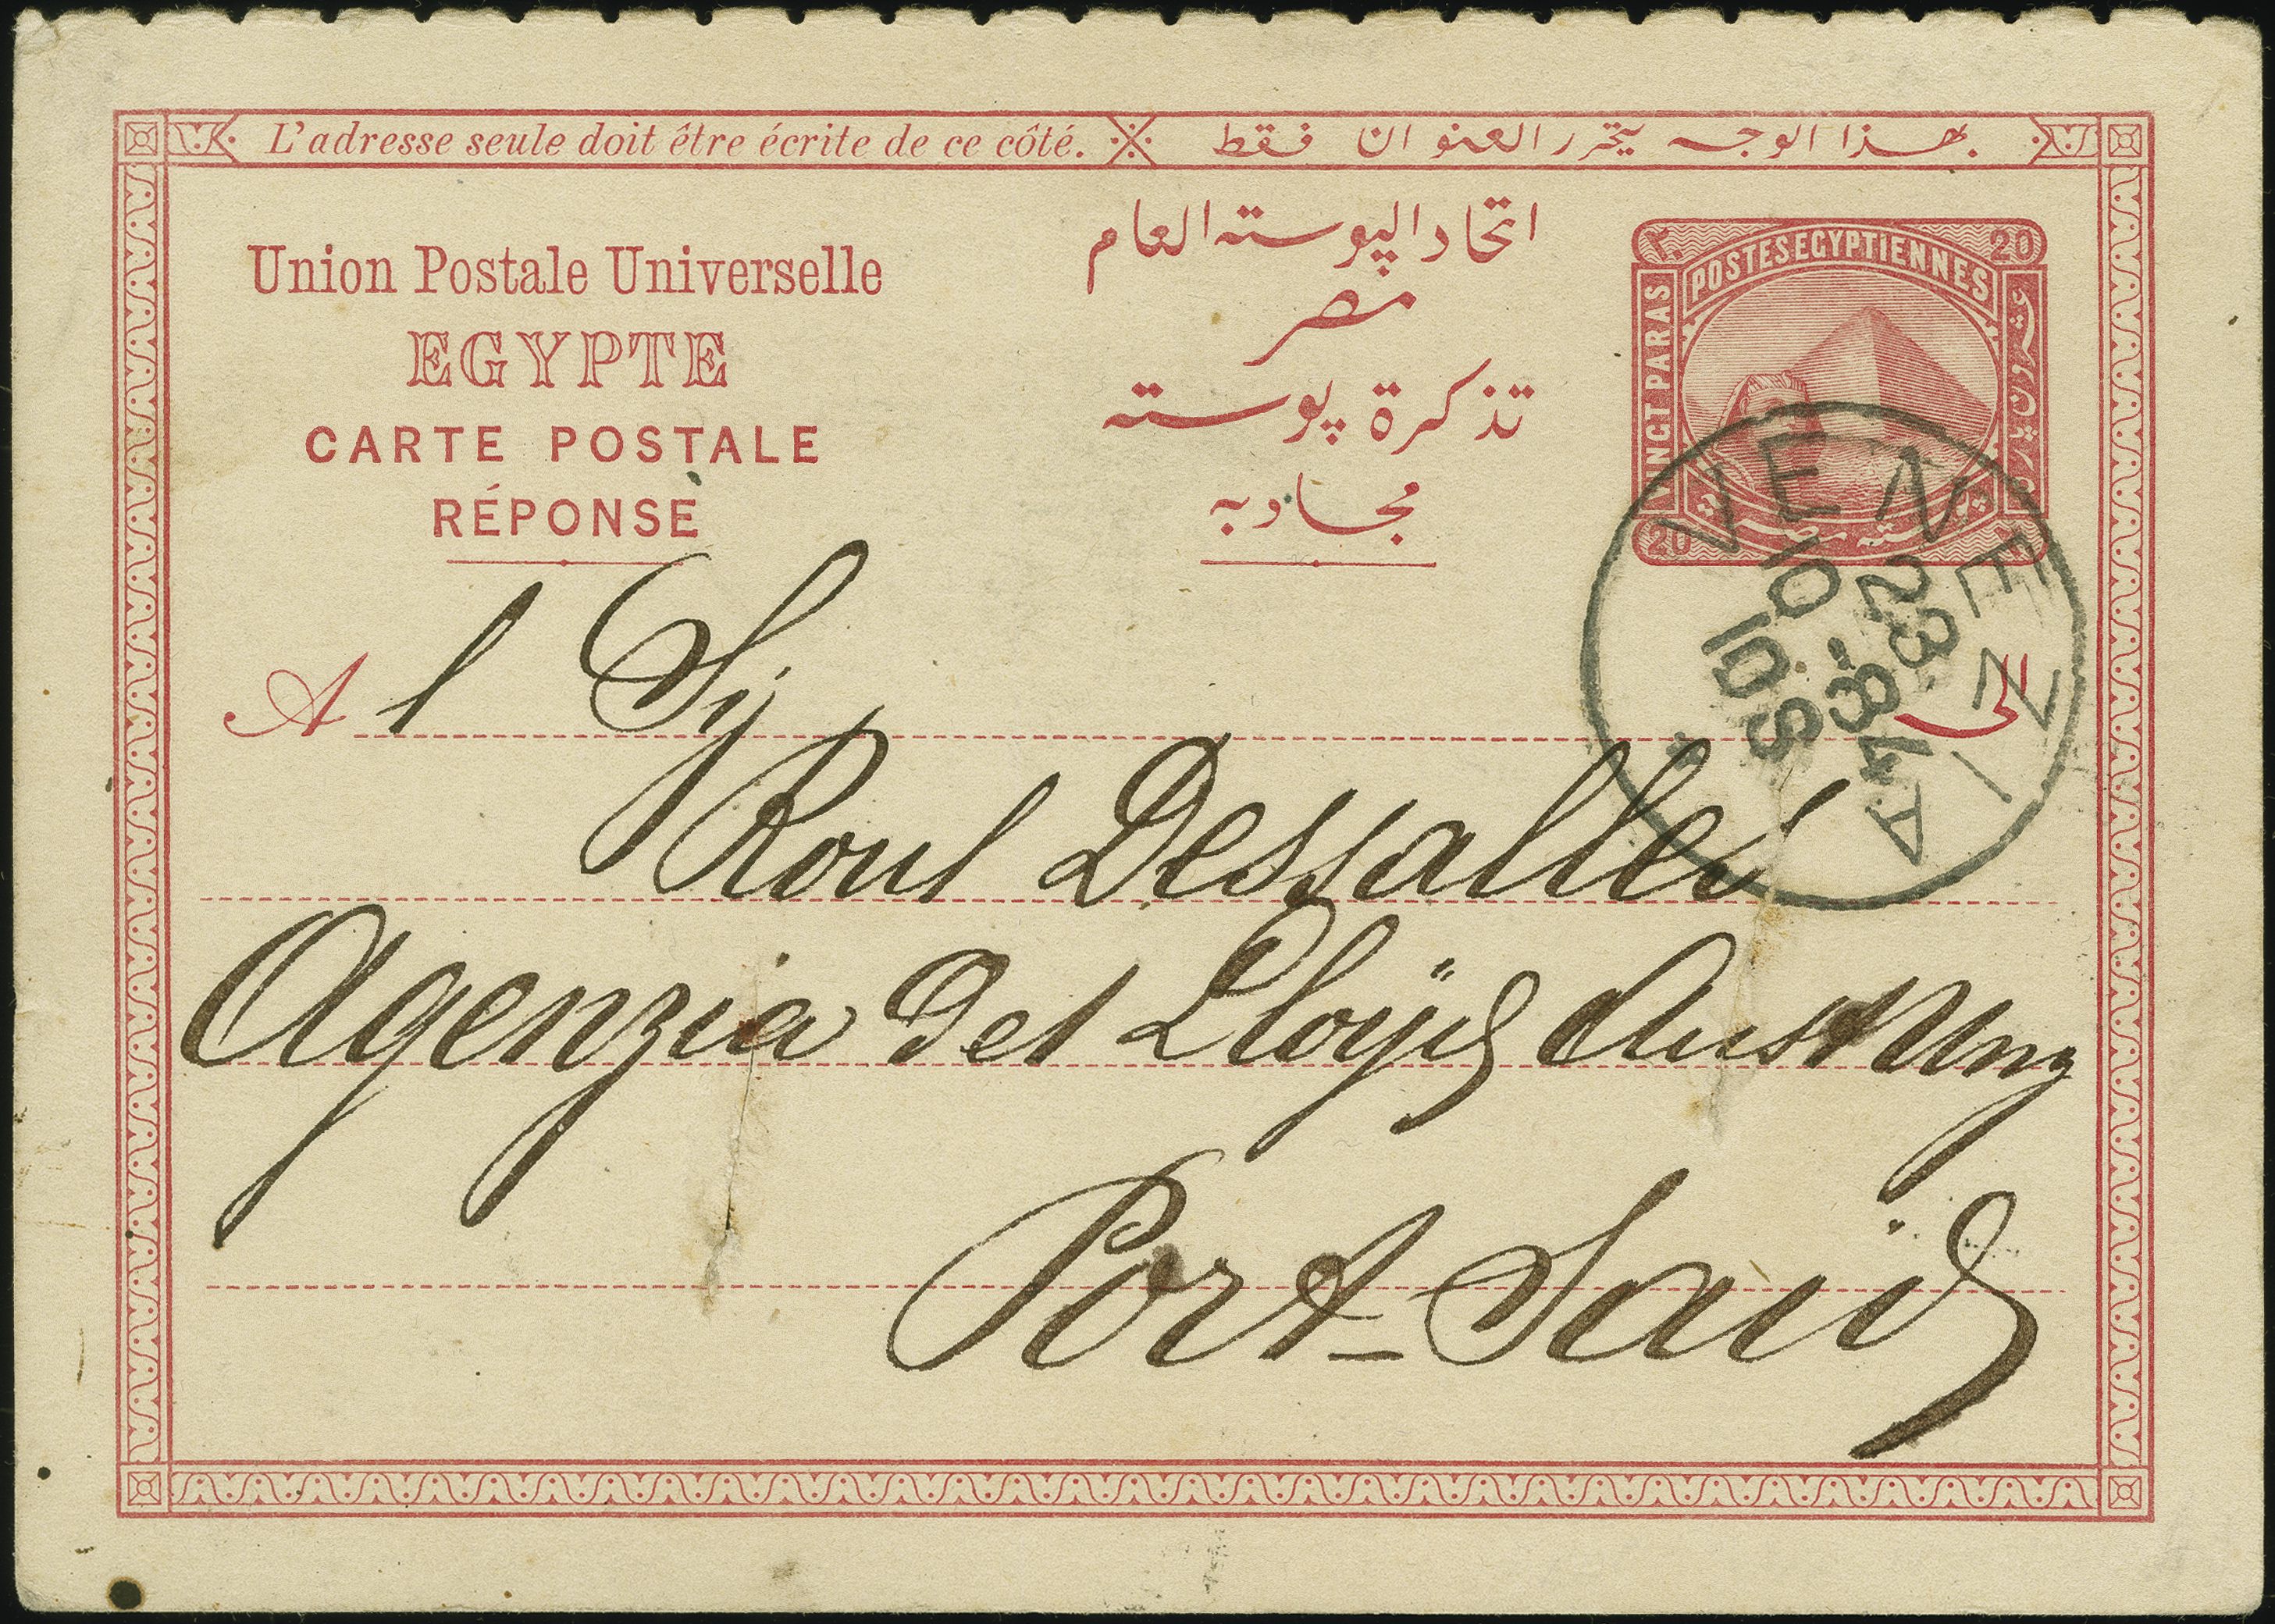 L'adresse seule doit être écrite de ce côté. بهذا الوجه يتحرر العنوان فقط
Union Postale Universelle
EGYPTE
CARTE POSTALE
RÉPONSE
اتحاد البوسته العام
مصر
تذكرة بوسته
مجاوبه
٢٠ POSTES EGYPTIENNES 20
VINGT PARAS
عشرون باره
20
VENEZIA
23
10 - 8 4
10 S
A l Sig
الى
Roul Dessalles
Agenzia del Lloÿd Aust Ung
Port-Said